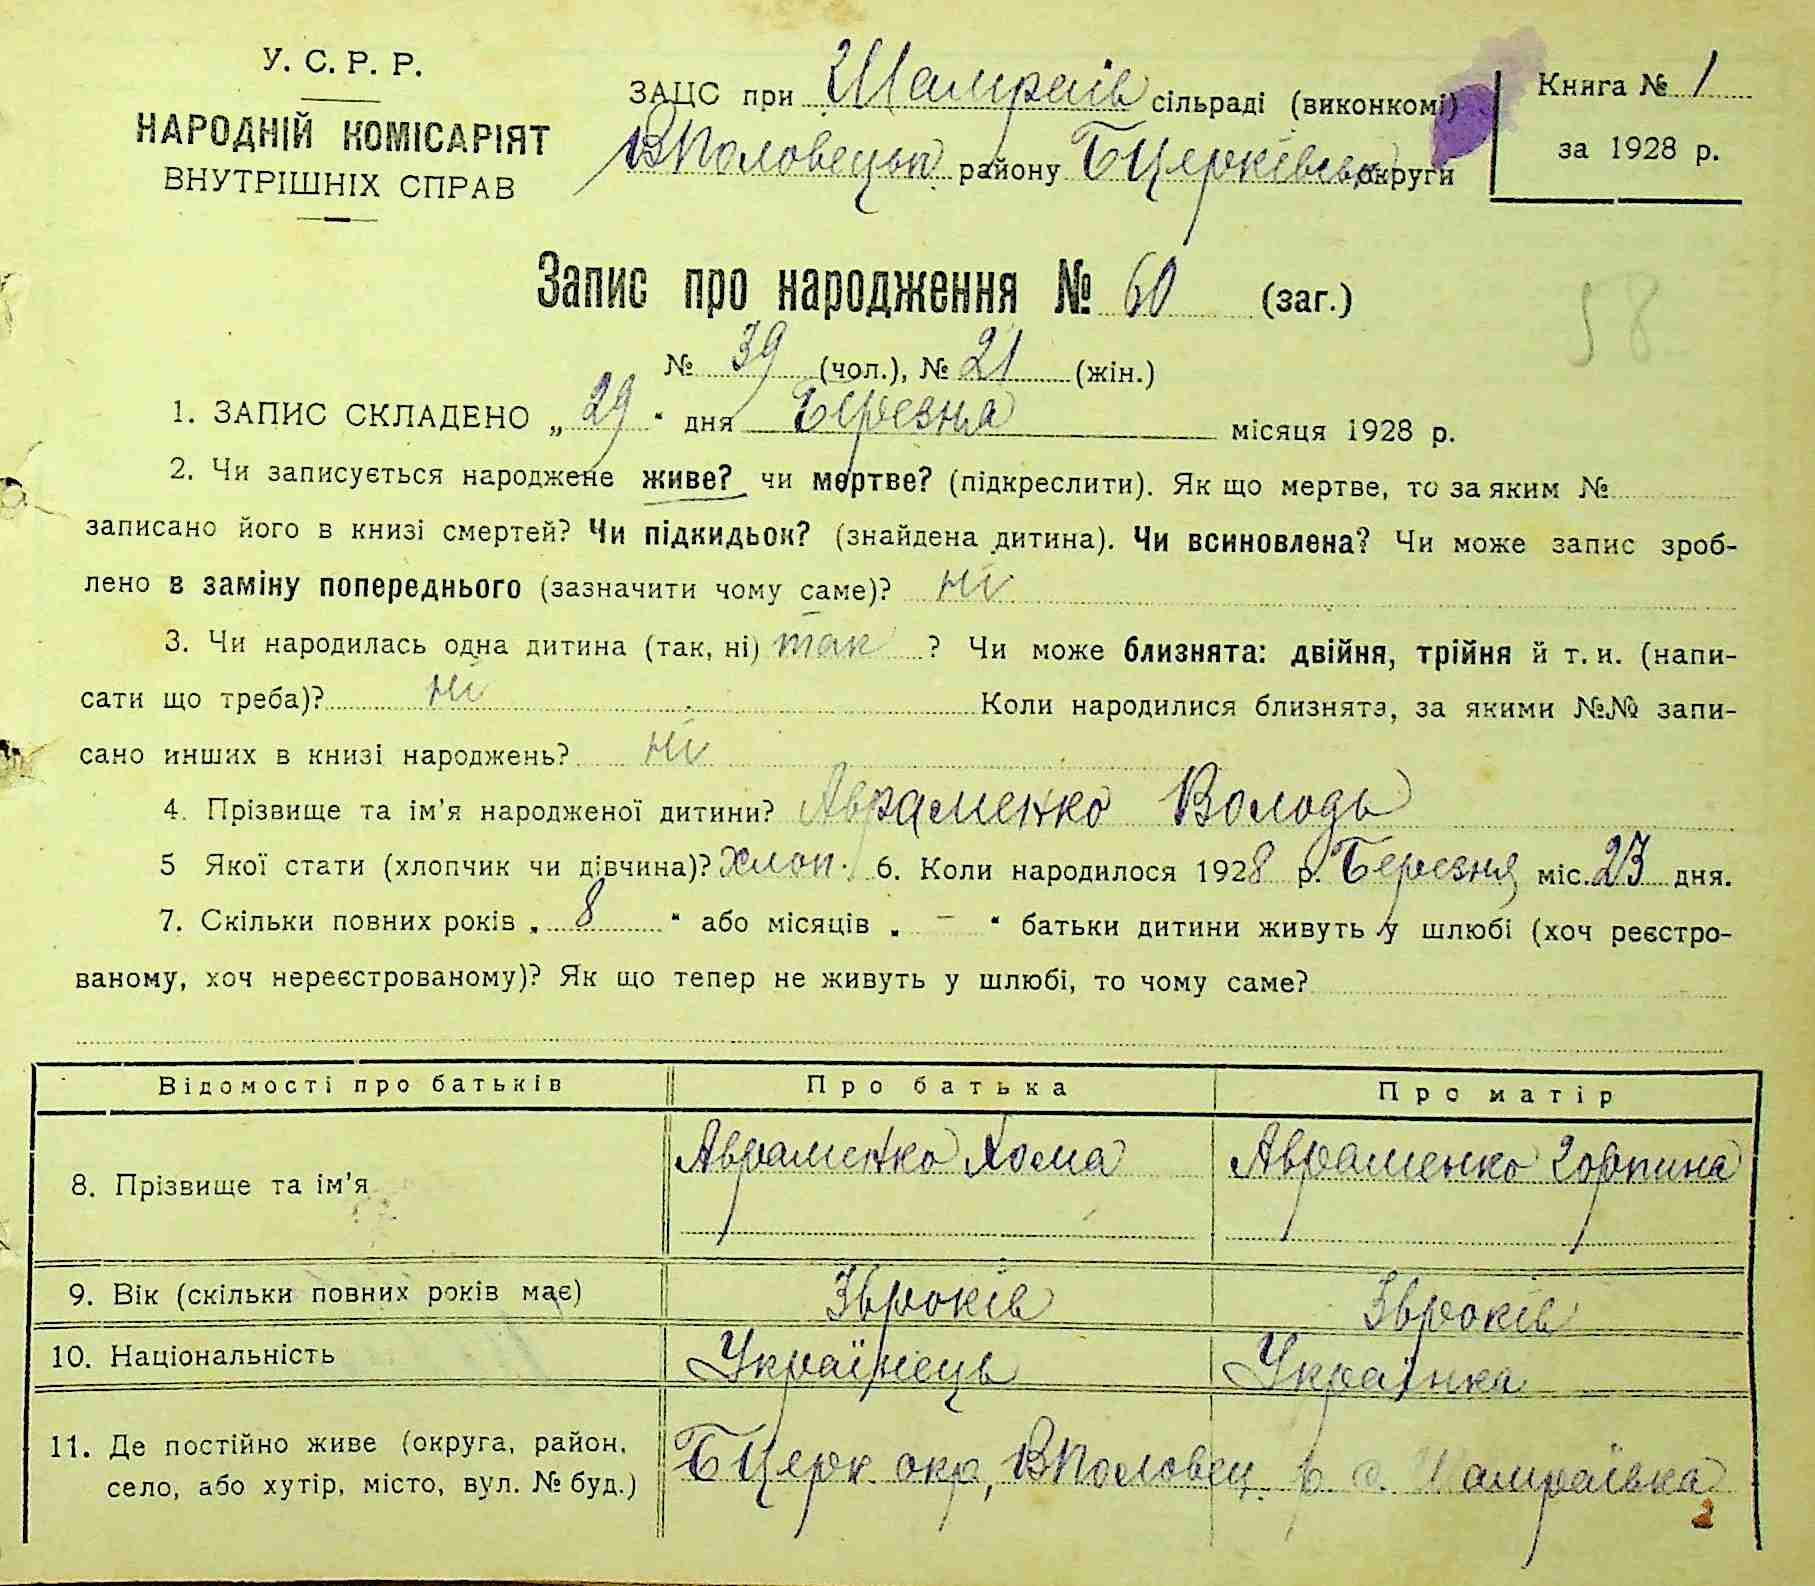 У. С. Р. Р.
НАРОДНІЙ КОМІСАРІЯТ
ВНУТРІШНІХ СПРАВ
ЗАЦС при Шамраїв сільраді (виконкомі)
ВПоловецьк району БЦерківськ округи
Книга № 1
за 1928 р.
Запис про народження № 60 (заг.)
58
№ 39 (чол.), № 21 (жін.)
1. ЗАПИС СКЛАДЕНО „ 29 “ дня Березня місяця 1928 р.
2. Чи записується народжене живе? чи мертве? (підкреслити). Як що мертве, то за яким №
записано його в книзі смертей? Чи підкидьок? (знайдена дитина). Чи всиновлена? Чи може запис зроб-
лено в заміну попереднього (зазначити чому саме)? ні
3. Чи народилась одна дитина (так, ні) так ? Чи може близнята: двійня, трійня й т. и. (напи-
сати що треба)? ні Коли народилися близнята, за якими №№ запи-
сано инших в книзі народжень? ні
4. Прізвище та ім'я народженої дитини? Авраменко Володь
5 Якої стати (хлопчик чи дівчина)? Хлоп. 6. Коли народилося 1928 р. Березня міс. 23 дня.
7. Скільки повних років „ 8 “ або місяців „ – “ батьки дитини живуть у шлюбі (хоч реєстро-
ваному, хоч нереєстрованому)? Як що тепер не живуть у шлюбі, то чому саме?
Відомості про батьків Про батька Про матір
8. Прізвище та ім'я Авраменко Хома Авраменко Горпина
9. Вік (скільки повних років має) 36 років 36 років
10. Національність Українець Українка
11. Де постійно живе (округа, район,
село, або хутір, місто, вул. № буд.) БЦерк. окр, ВПоловец. р. с. Шамраївка